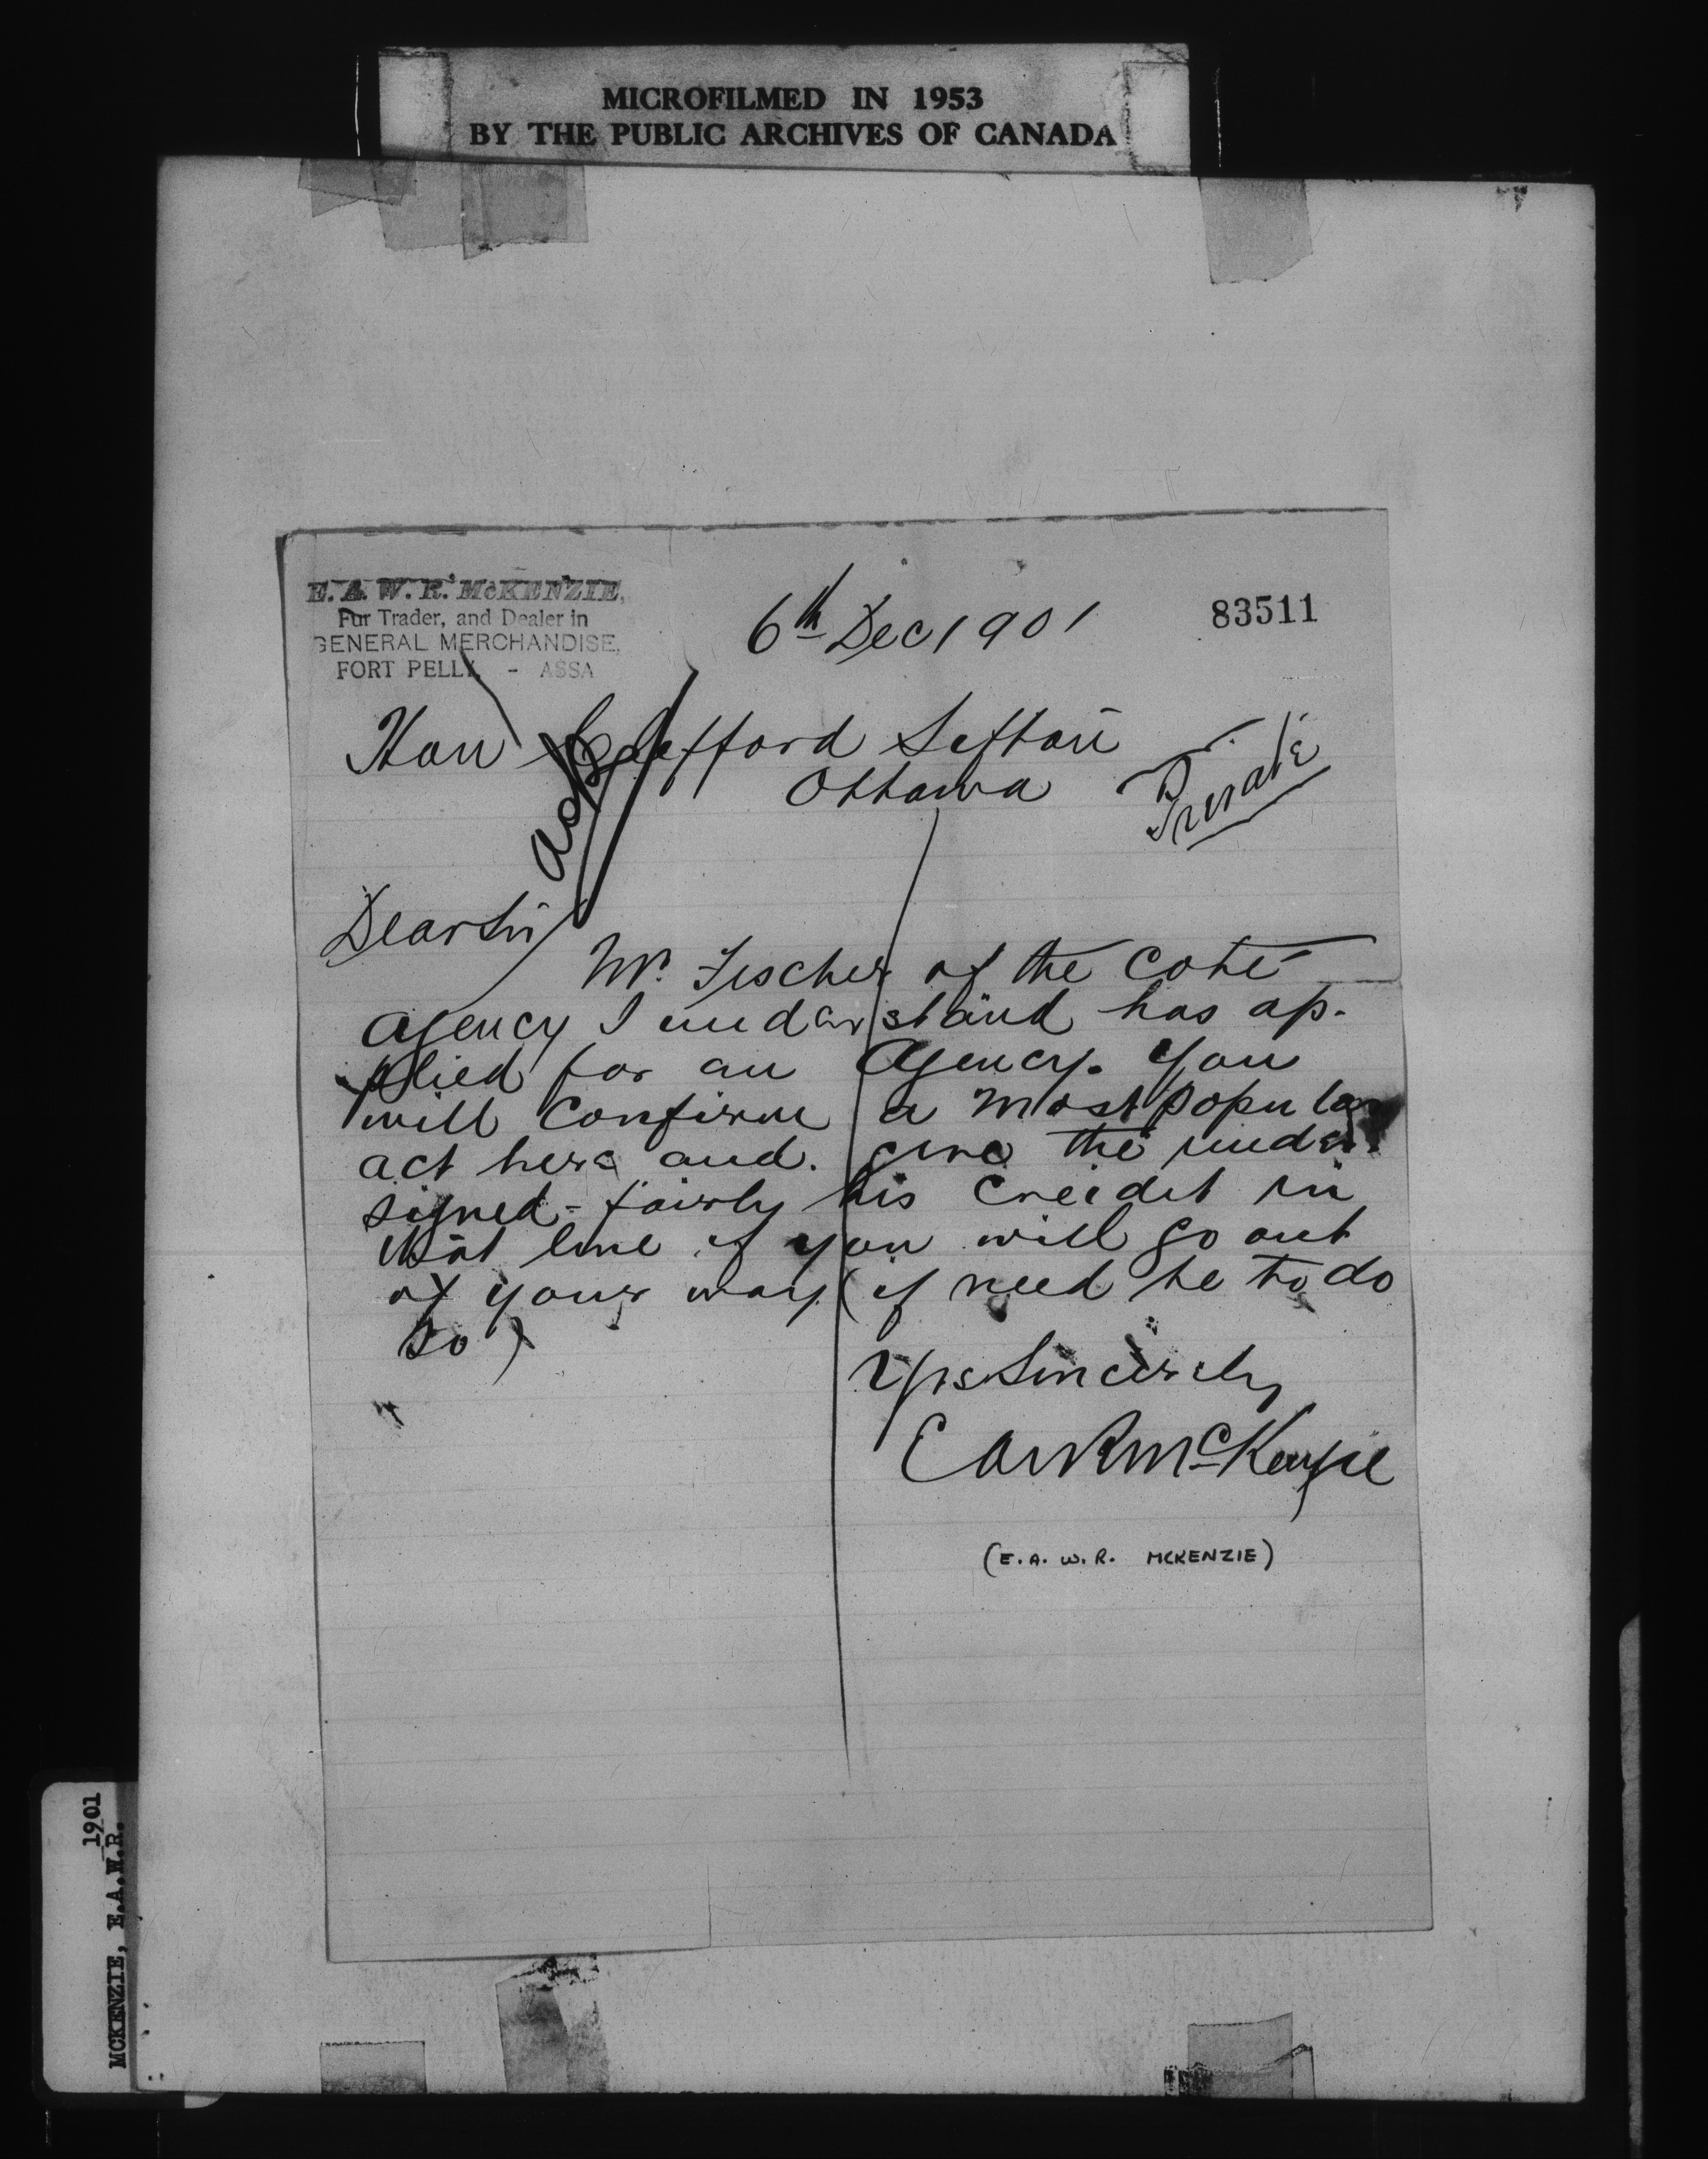 MICROFILMED IN 1953
BY THE PUBLIC ARCHIVES OF CANADA
E. A. W. R. McKENZIE,
Fur Trader, and Dealer in
GENERAL MERCHANDISE,
FORT PELLY, - ASSA
6th Dec 1901
83511
Hon Clifford Sifton
Ottawa
Private
ack
Dear Sir
Mr. Fischer of the Cote
Agency I understand has ap-
plied for an Agency. You
will confirm a most popular
act here and. give the under
signed - fairly his creidit in
that line if you will go out
of your way (if need be to do
so)
Yrs Sincerely
E A W R McKenzie
(E. A. W. R. MCKENZIE)
MCKENZIE, E.A.W.R.
1901